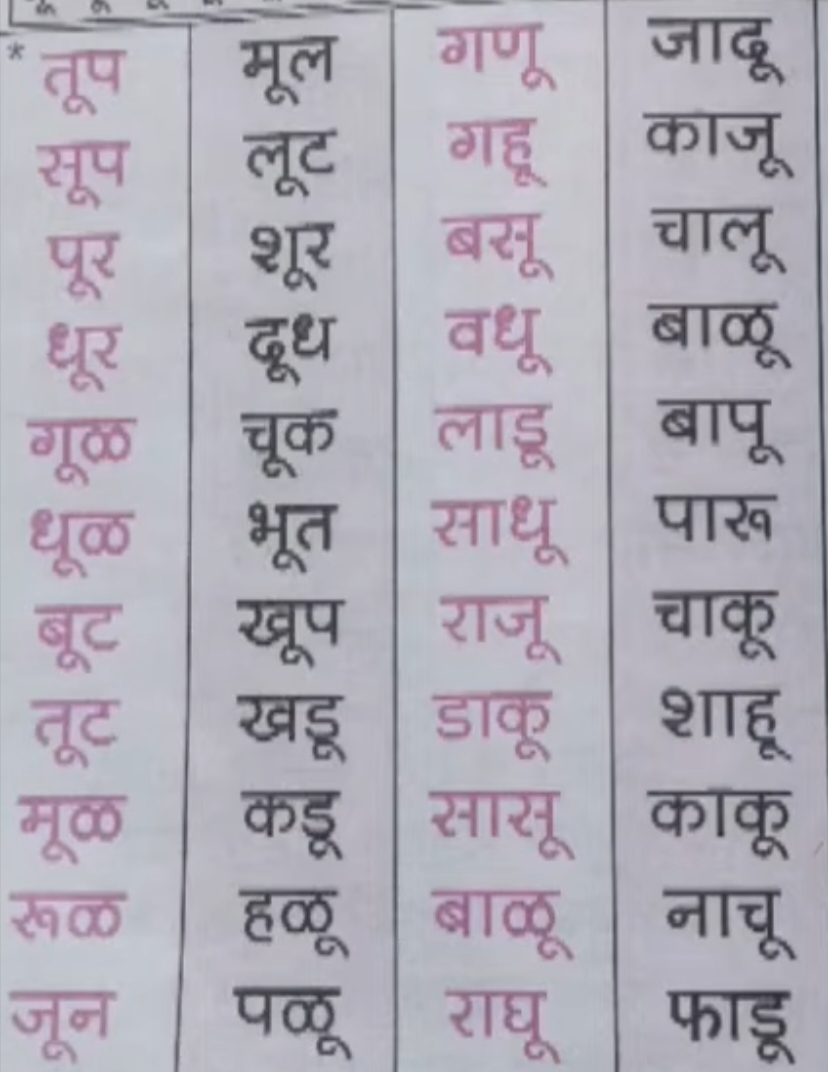 * तूप मूल गणू जादू
सूप लूट गहू काजू
पूर शूर बसू चालू
धूर दूध वधू बाळू
गूळ चूक लाडू बापू
धूळ भूत साधू पारू
बूट खूप राजू चाकू
तूट खडू डाकू शाहू
मूळ कडू सासू काकू
रूळ हळू बाळू नाचू
जून पळू राघू फाडू